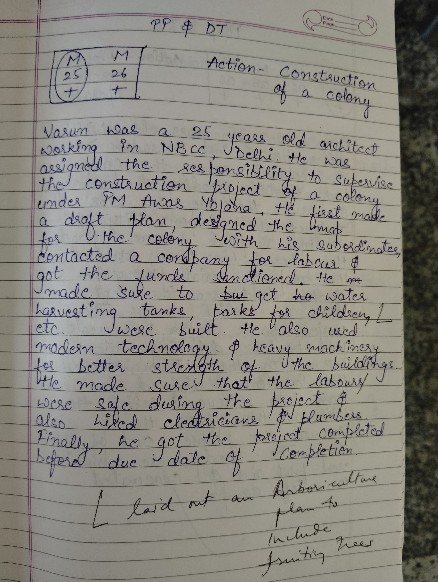 PP & DT
M M
25 26
+ +
Action - Construction
of a colony
Varun was a 25 years old architect
working in NBCC, Delhi. He was
assigned the responsibility to supervise
the construction project of a colony
under PM Awas Yojana. He first made
a draft plan, designed the map
for the colony with his subordinates,
contacted a company for labour &
got the funds sanctioned. He
made sure to get water
harvesting tanks, parks for children, [
etc. were built He also used
modern technology & heavy machinery
for better strength of the buildings.
He made sure that the labours
were safe during the project &
also hired electricians & plumbers
Finally, he got the project completed
before due date of completion
[ laid out an Arboriculture
plan to
include
fruiting trees